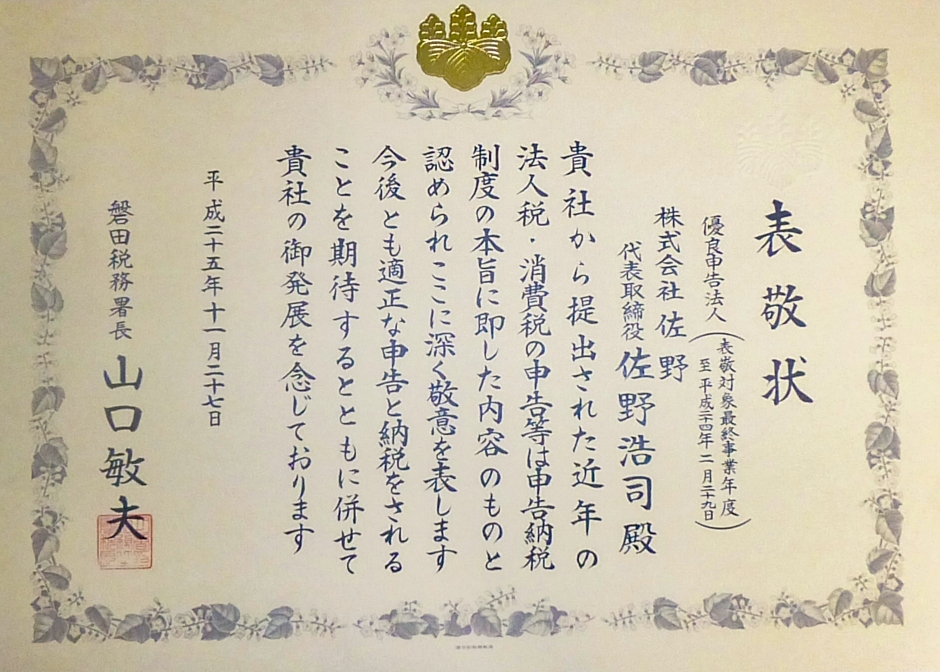 表敬状
優良申告法人
表敬対象最終事業年度
至 平成二十四年二月二十九日
株式会社佐野
代表取締役 佐野浩司 殿
貴社から提出された近年の
法人税・消費税の申告等は申告納税
制度の本旨に即した内容のものと
認められここに深く敬意を表します
今後とも適正な申告と納税をされる
ことを期待するとともに併せて
貴社の御発展を念じております
平成二十五年十一月二十七日
磐田税務署長 山口敏夫